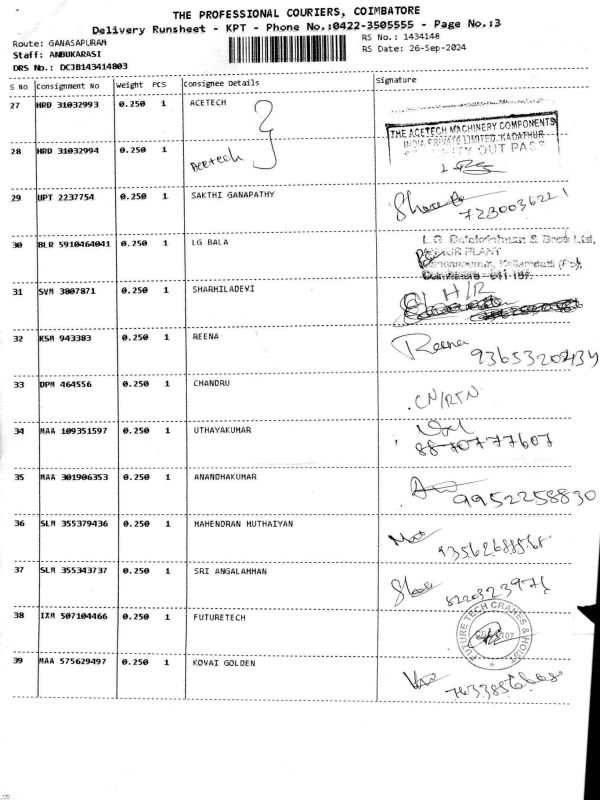 THE PROFESSIONAL COURIERS, COIMBATORE
Delivery Runsheet - KPT - Phone No.:0422-3505555 - Page No.:3
Route: GANASAPURAM
RS No.: 1434148
Staff: ANBUKARASI
RS Date: 26-Sep-2024
DRS No.: DCJB143414803
S No Consignment No Weight PCS Consignee Details Signature
27 HRD 31032993 0.250 1 ACETECH
THE ACETECH MACHINERY COMPONENTS
INDIA PRIVATE LIMITED, KADATHUR
OUT PASS
28 HRD 31032994 0.250 1 Acetech
29 UPT 2237754 0.250 1 SAKTHI GANAPATHY
30 BLR 5910464041 0.250 1 LG BALA L.G. Balakrishnan & Bros Ltd,
PLANT
31 SVM 3807871 0.250 1 SHARHILADEVI H/R
32 KSM 943383 0.250 1 REENA Reena 9365320434
33 DPM 464556 0.250 1 CHANDRU CN/RTN
34 MAA 109351597 0.250 1 UTHAYAKUMAR 8870777607
35 MAA 301906353 0.250 1 ANANDHAKUMAR 9952258830
36 SLM 355379436 0.250 1 MAHENDRAN HUTHAIYAN
37 SLM 355343737 0.250 1 SRI ANGALAMMAN
38 IXM 507104466 0.250 1 FUTURETECH FUTURE TECH CRANES & HOIST
39 MAA 575629497 0.250 1 KOVAI GOLDEN